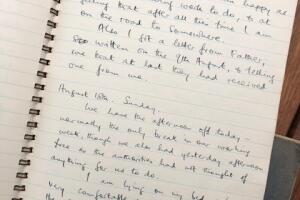 happy as
feeling that after all this time I am
on the road to somewhere.
Also I got a letter from Father,
written on the 9th August, & telling
me that at last they had received
one from me.
August 18th. Sunday.
We have the afternoon off today -
normally the only break in our working
week, though we also had yesterday afternoon
free as the authorities had not thought of
anything for us to do.
I am lying on my bed
very comfortable